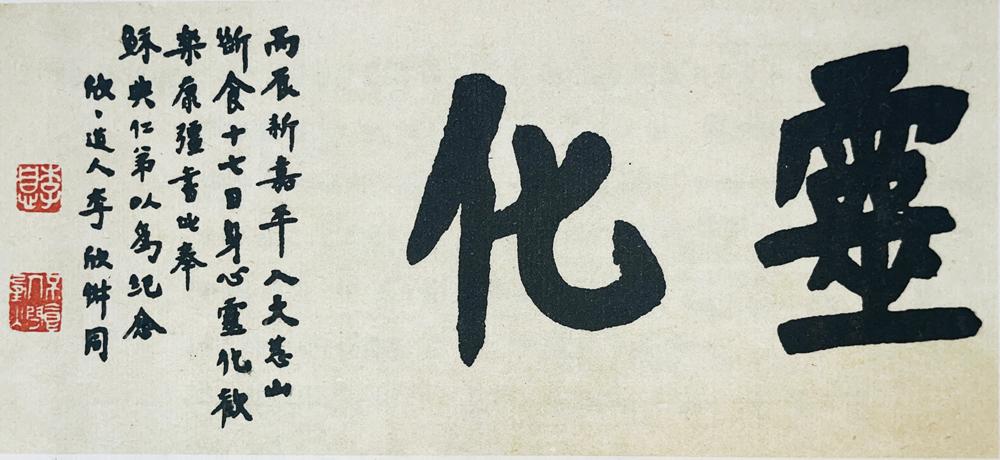 靈化
丙辰新嘉平入大慈山
斷食十七日身心靈化歡
樂康彊書此奉
穌典仁弟以為紀念
欣〻道人李欣俶同
李息